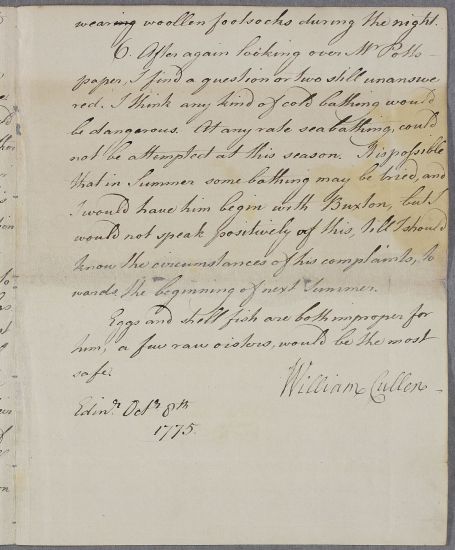 wearing woollen footsocks during the night.
6. After again looking over Mr Potts
paper, I find a question or two still unanswe
red. I think any kind of cold bathing would
be dangerous. At any rate sea bathing, could
not be attempted at this season. It is possible
that in Summer some bathing may be tried, and
I would have him begin with Buxton, but I
would not speak positively of this, till I should
know the circumstances of his complaints, to
wards the beginning of next Summer.
Eggs and shell fish are both improper for
him, a few raw oisters, would be the most
safe.
William Cullen
Edinr. Octr. 8th
1775.